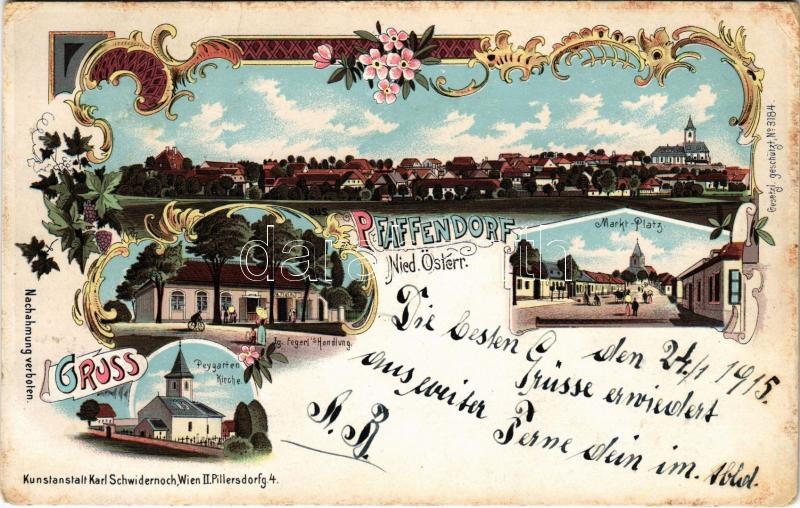 Gesetzl. geschützt, No 3184.
GRUSS
aus
PFAFFENDORF
Nied. Österr.
Markt-Platz
Ig. Fegerl's Handlung.
Peygarten
Kirche.
Nachahmung verboten.
den 24/1 1915.
Die besten G
rüsse erwiedert
aus weiter Ferne dein im.
A. R.
Kunstanstalt Karl Schwidernoch, Wien II. Pillersdorfg. 4.
darabanth